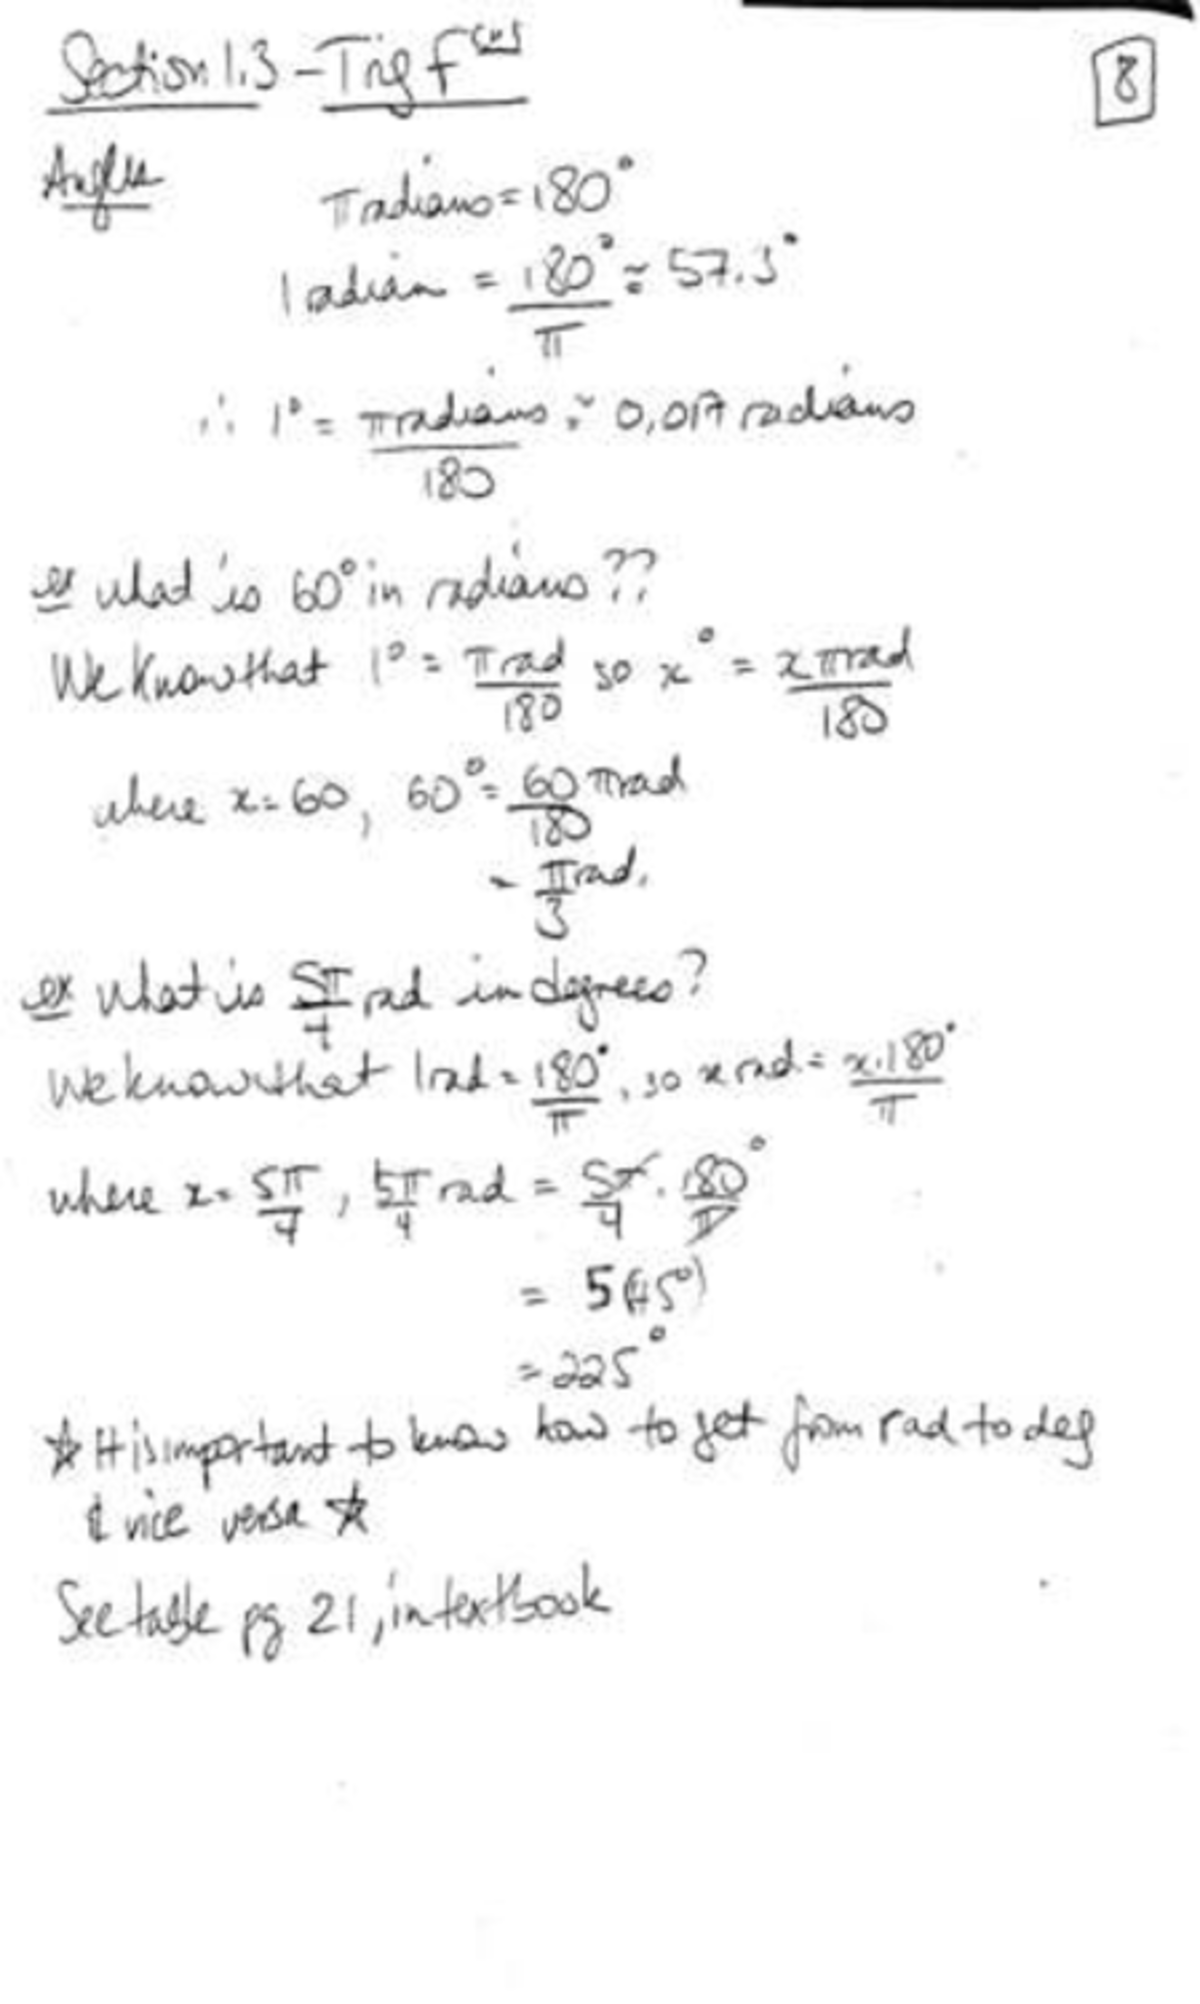 Section 1.3 - Trig f^cns
8
Angles
π radians = 180°
1 radian = 180°/π ≈ 57.3°
∴ 1° = π radians/180 ≈ 0,017 radians
ex what is 60° in radians??
We know that 1° = π rad/180 so x° = xπ rad/180
where x = 60, 60° = 60 π rad/180
= π/3 rad.
ex what is 5π/4 rad in degrees?
We know that 1 rad = 180°/π, so x rad = x·180°/π
where x = 5π/4, 5π/4 rad = 5π/4 · 180°/π
= 5(45°)
= 225°
☆ It is important to know how to get from rad to deg
& vice versa ☆
See table pg 21, in textbook